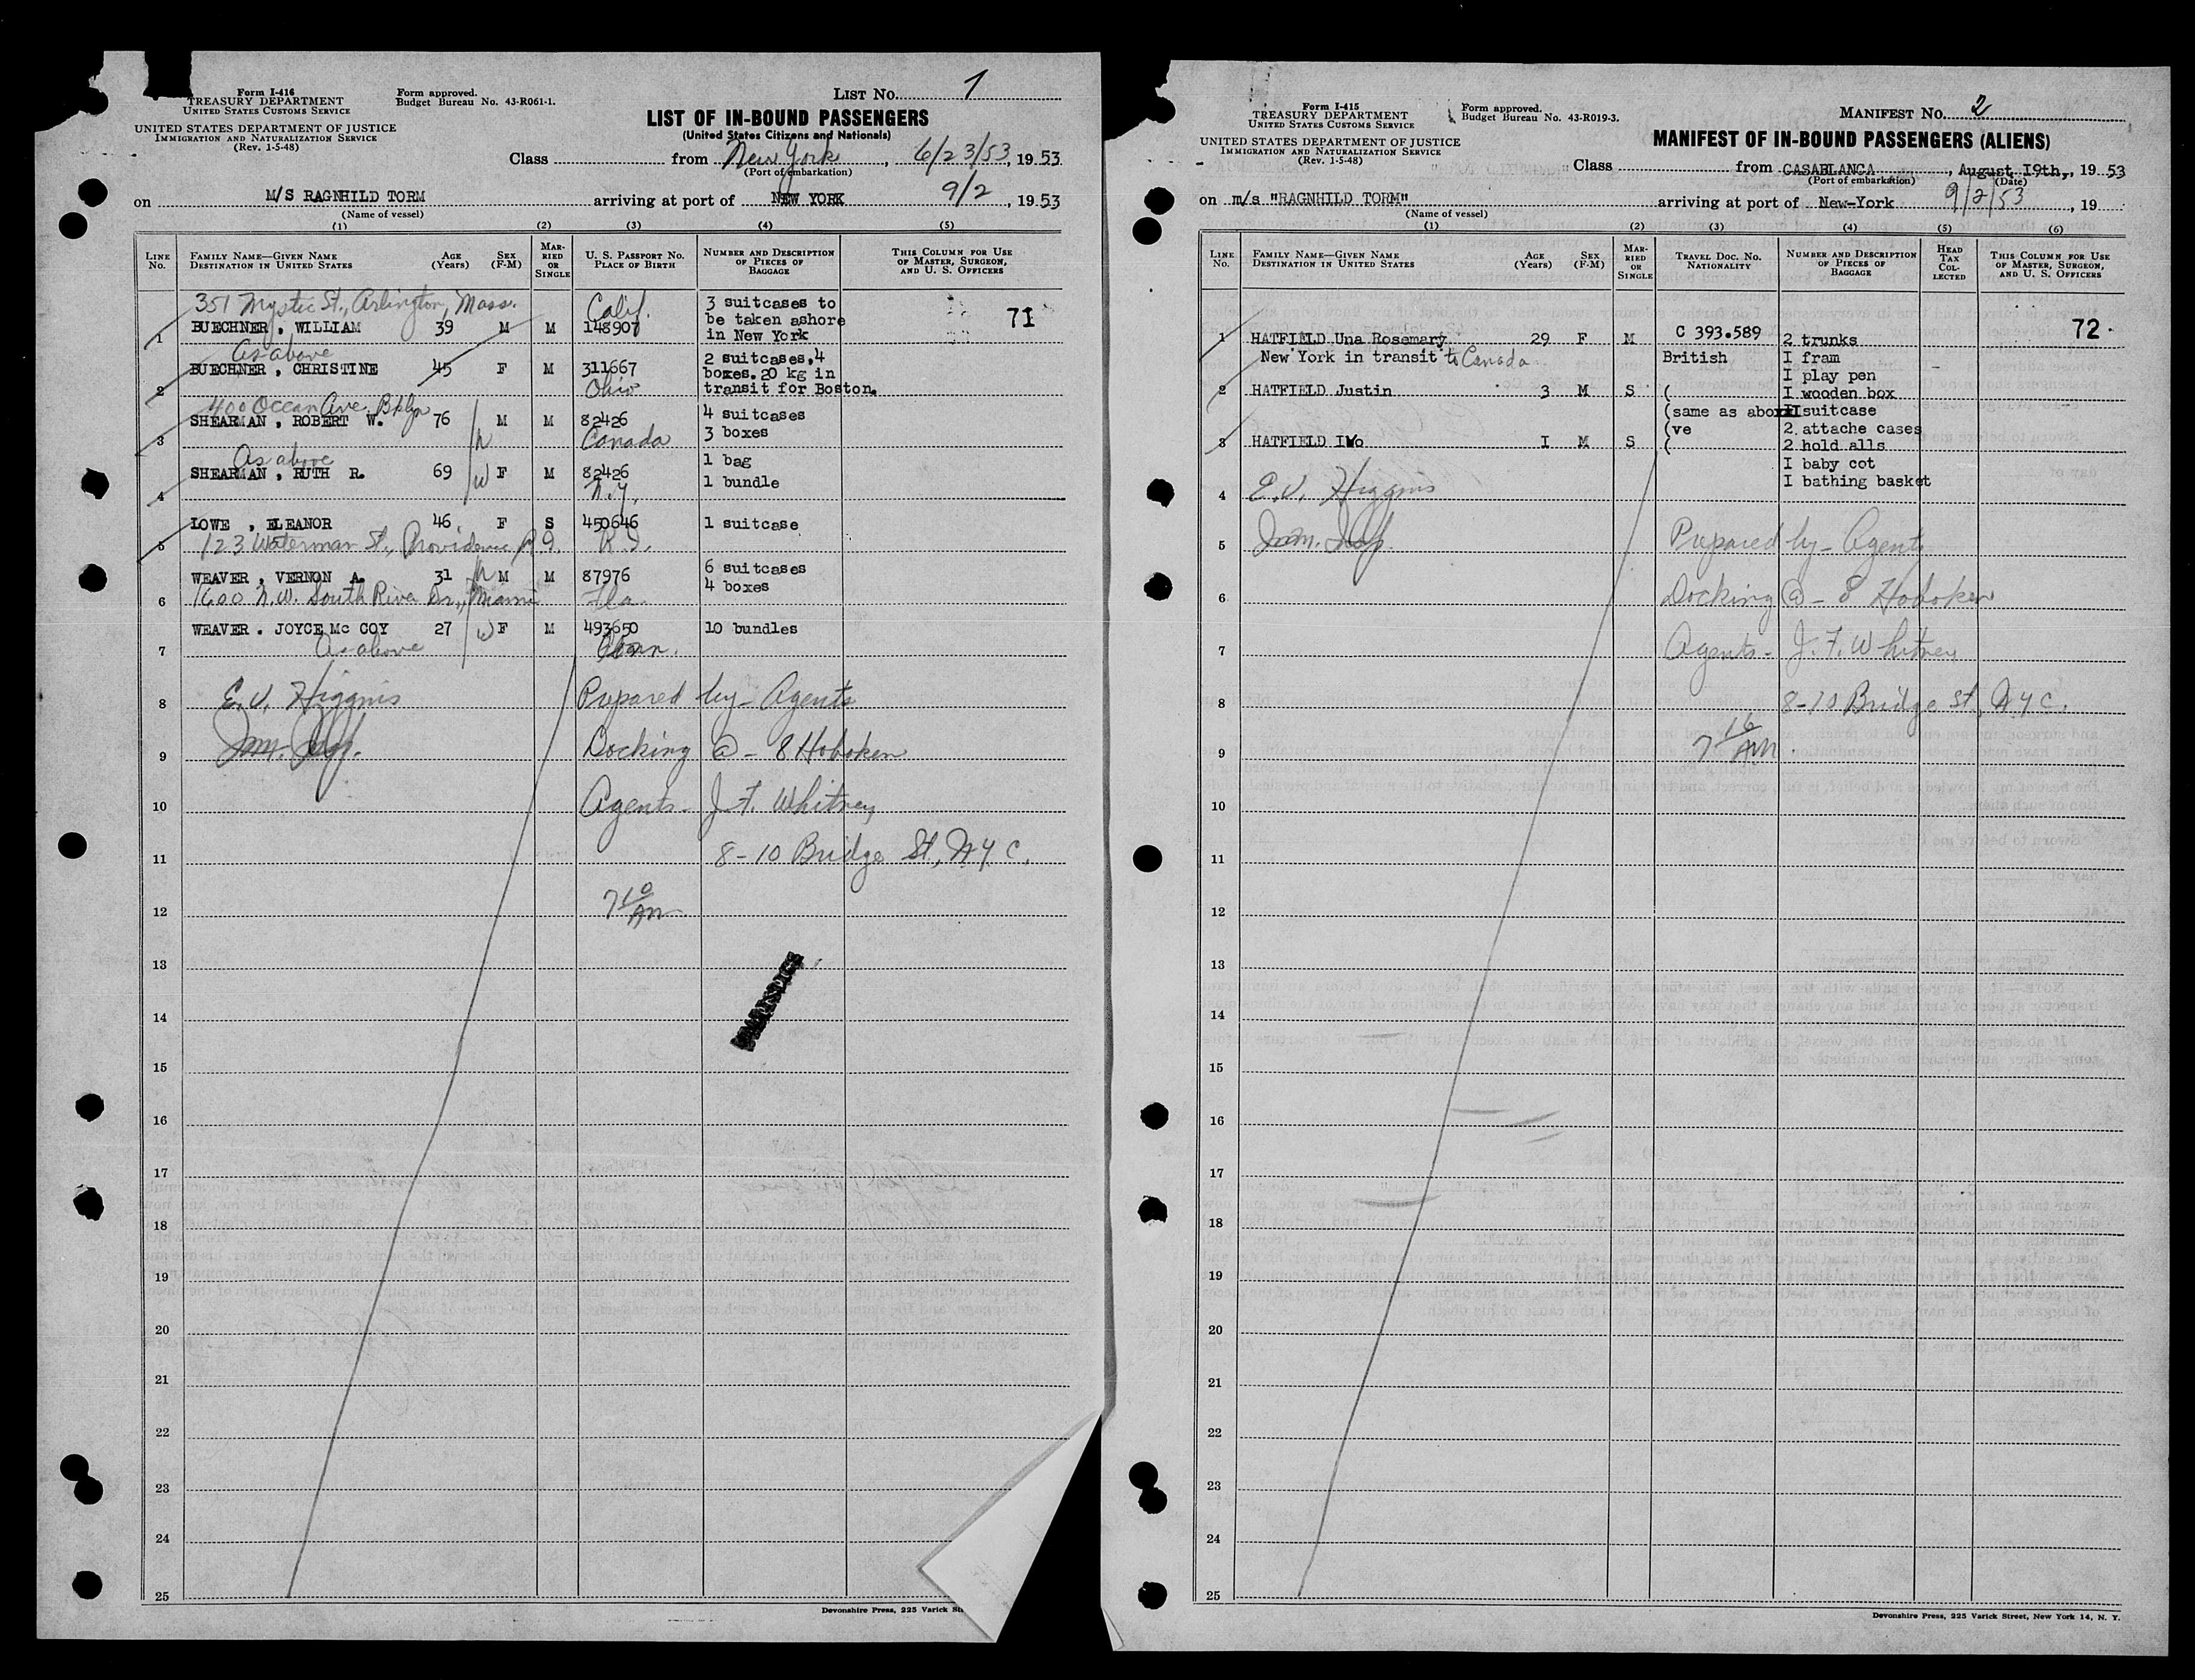 Form I-416
TREASURY DEPARTMENT
UNITED STATES CUSTOMS SERVICE
UNITED STATES DEPARTMENT OF JUSTICE
IMMIGRATION AND NATURALIZATION SERVICE
(Rev. 1-5-48)
Form approved.
Budget Bureau No. 43-R061-1.
LIST NO. 1
LIST OF IN-BOUND PASSENGERS
(United States Citizens and Nationals)
Class from New York, 6/23/53, 1953
(Port of embarkation)
on M/S RAGNHILD TORM arriving at port of NEW YORK 9/2, 1953
(Name of vessel)
(1) (2) (3) (4) (5)
LINE No. FAMILY NAME—GIVEN NAME DESTINATION IN UNITED STATES AGE (Years) SEX (F-M) MARRIED OR SINGLE U. S. PASSPORT NO. PLACE OF BIRTH NUMBER AND DESCRIPTION OF PIECES OF BAGGAGE THIS COLUMN FOR USE OF MASTER, SURGEON, AND U. S. OFFICERS
351 Mystic St., Arlington, Mass. Calif. 3 suitcases to
1 BUECHNER, WILLIAM 39 M M 148907 be taken ashore 71
in New York
As above 2 suitcases, 4
2 BUECHNER, CHRISTINE 45 F M 311667 boxes. 20 kg in
Ohio transit for Boston.
400 Ocean Ave. Bklyn
3 SHEARMAN, ROBERT W. 76 M M 82426 4 suitcases
h Canada 3 boxes
As above 1 bag
4 SHEARMAN, RUTH R. 69 w F M 82426 1 bundle
N.Y.
5 LOWE , ELEANOR 46 F S 450646 1 suitcase
123 Waterman St., Providence, R.I. R.I.
6 WEAVER, VERNON A. 31 h M M 87976 6 suitcases
1600 N.W. South River Dr., Miami Fla. 4 boxes
7 WEAVER. JOYCE Mc COY 27 w F M 493650 10 bundles
As above
8 E. V. Higgins Prepared by - Agents
9 Docking @ - 8 Hoboken
10 Agents - J. F. Whitney
11 8-10 Bridge St., N.Y.C.
12 7 10 AM
13
14
15
16
17
18
19
20
21
22
23
24
25
Devonshire Press, 225 Varick
Form I-415
TREASURY DEPARTMENT
UNITED STATES CUSTOMS SERVICE
UNITED STATES DEPARTMENT OF JUSTICE
IMMIGRATION AND NATURALIZATION SERVICE
(Rev. 1-5-48)
Form approved.
Budget Bureau No. 43-R019-3.
MANIFEST NO. 2
MANIFEST OF IN-BOUND PASSENGERS (ALIENS)
Class from CASABLANCA, August I9th, 1953
(Port of embarkation) (Date)
on m/s "RAGNHILD TORM" arriving at port of New-York 9/2/53, 19
(Name of vessel)
(1) (2) (3) (4) (5) (6)
LINE No. FAMILY NAME—GIVEN NAME DESTINATION IN UNITED STATES AGE (Years) SEX (F-M) MARRIED OR SINGLE TRAVEL DOC. NO. NATIONALITY NUMBER AND DESCRIPTION OF PIECES OF BAGGAGE HEAD TAX COLLECTED THIS COLUMN FOR USE OF MASTER, SURGEON, AND U. S. OFFICERS
1 HATFIELD Una Rosemary 29 F M C 393.589 2 trunks 72
New York in transit to Canada British I fram
I play pen
2 HATFIELD Justin 3 M S ( I wooden box
(same as abo suitcase
(ve 2 attache cases
3 HATFIELD Ivo I M S ( 2 hold alls
I baby cot
4 E. V. Higgins I bathing basket
5 Prepared by - Agents
6 Docking @ - 8 Hoboken
7 Agents - J. F. Whitney
8 8-10 Bridge St., N.Y.C.
9 7 16 AM
10
11
12
13
14
15
16
17
18
19
20
21
22
23
24
25
Devonshire Press, 225 Varick Street, New York 14, N. Y.